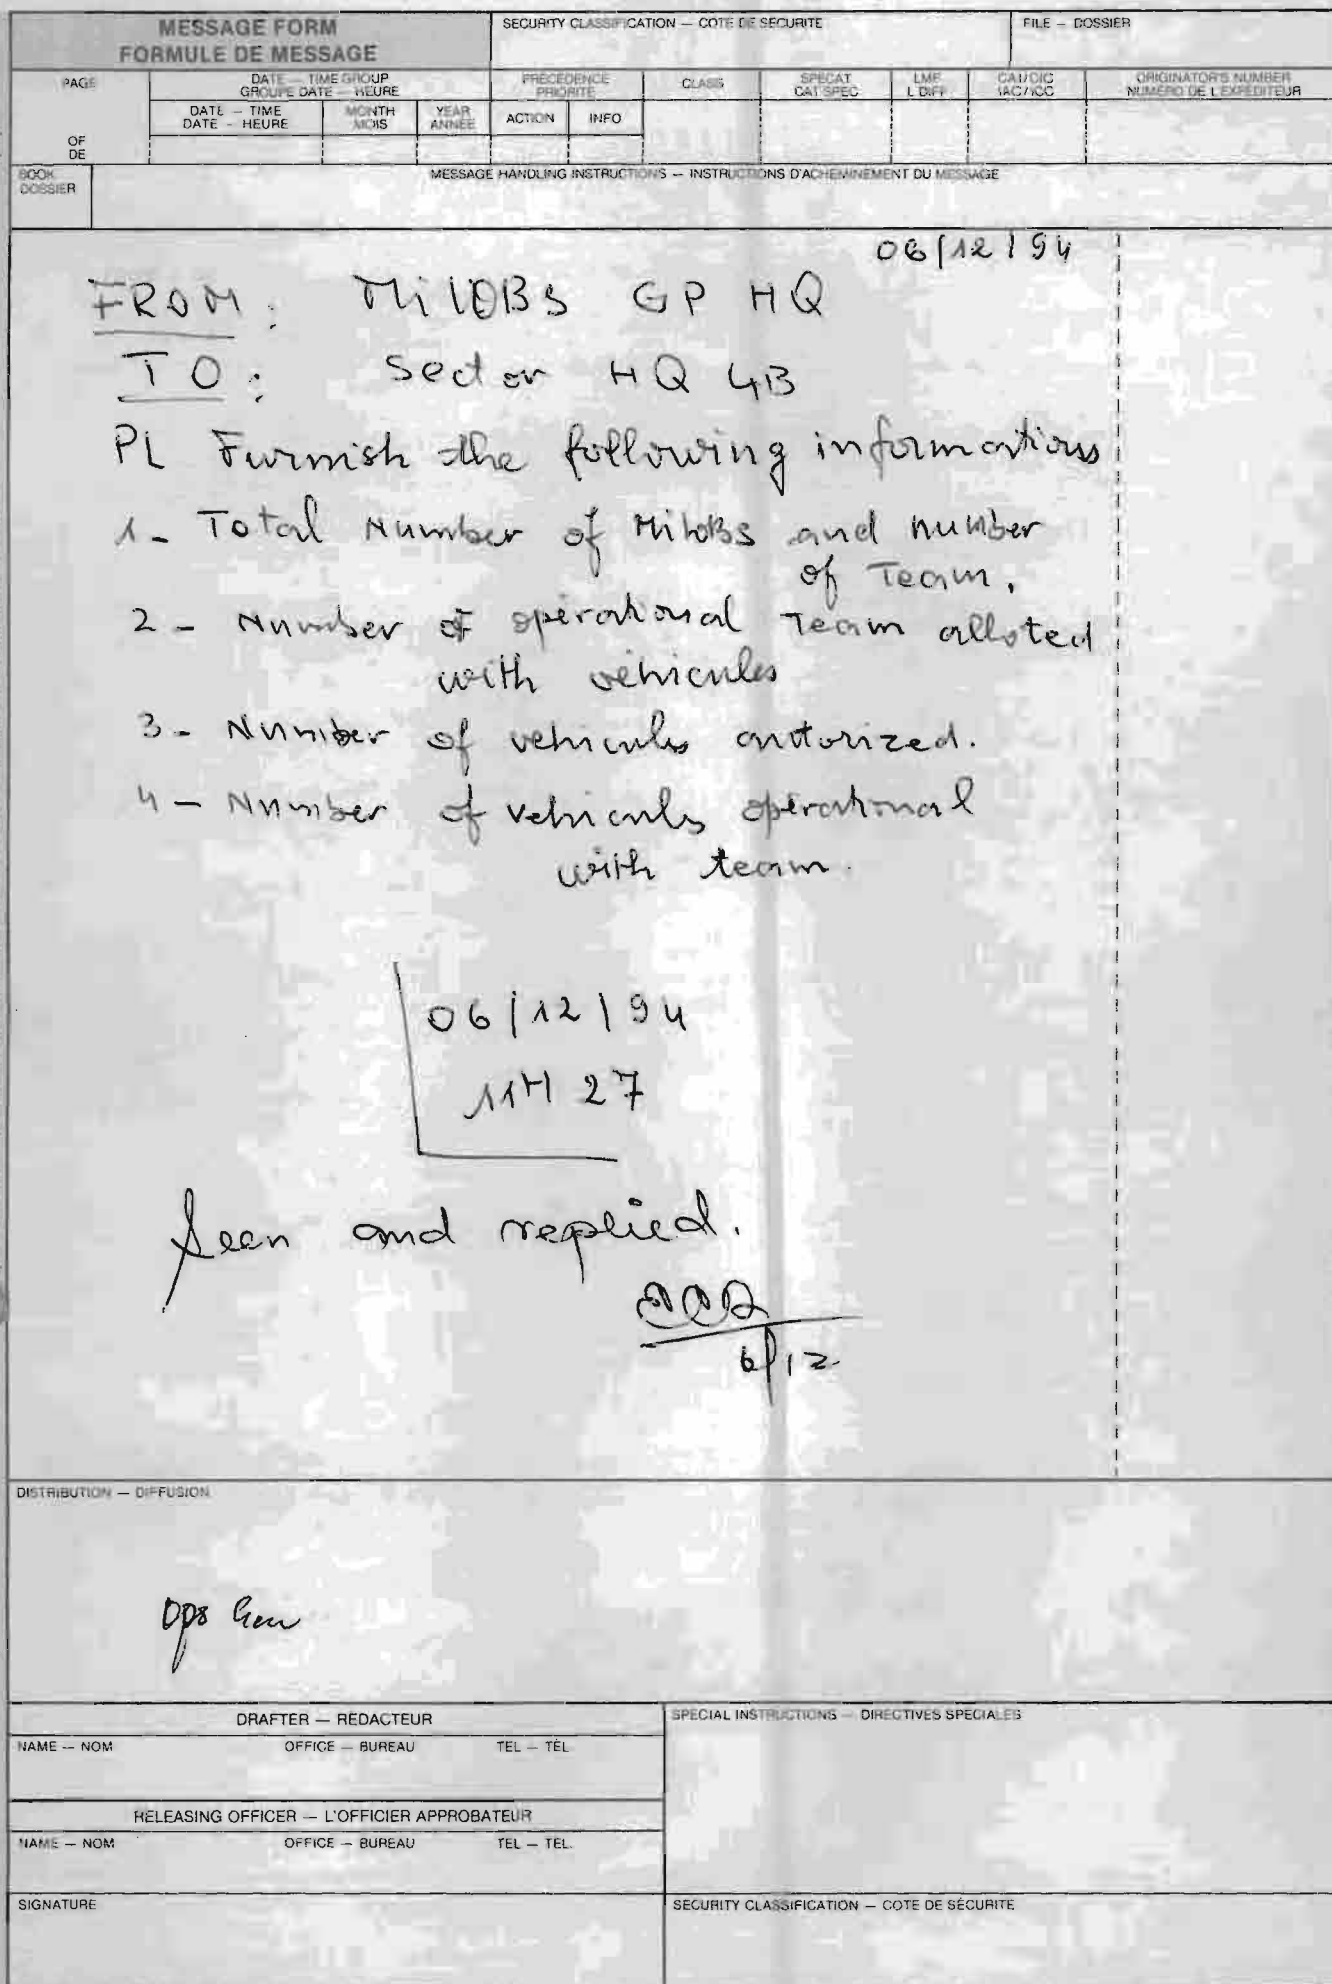 MESSAGE FORM
FORMULE DE MESSAGE
SECURITY CLASSIFICATION — COTE DE SECURITE
FILE — DOSSIER
PAGE
OF
DE
DATE — TIME GROUP
GROUPE DATE — HEURE
DATE — TIME
DATE - HEURE
MONTH
MOIS
YEAR
ANNÉE
PRECEDENCE
PRIORITE
ACTION
INFO
CLASS
SPECAT
CAT SPEC
LMF
L DIFF
CAI/CIC
IAC/ICC
ORIGINATOR'S NUMBER
NUMÉRO DE L'EXPÉDITEUR
BOOK
DOSSIER
MESSAGE HANDLING INSTRUCTIONS — INSTRUCTIONS D'ACHEMINEMENT DU MESSAGE
06/12/94
FROM: MilOBS GP HQ
TO: Sector HQ 4B
PL Furnish the following informations
1- Total Number of MilOBs and number
of Team.
2- Number of opérational Team alloted
with véhicules
3- Number of vehicules autorized.
4- Number of vehicules opérational
with team.
06/12/94
11H 27
Seen and replied.
6/12
DISTRIBUTION — DIFFUSION
Ops
DRAFTER — REDACTEUR
NAME — NOM OFFICE — BUREAU TEL — TÉL
RELEASING OFFICER — L'OFFICIER APPROBATEUR
NAME — NOM OFFICE — BUREAU TEL — TEL.
SIGNATURE
SPECIAL INSTRUCTIONS — DIRECTIVES SPECIALES
SECURITY CLASSIFICATION — COTE DE SÉCURITE